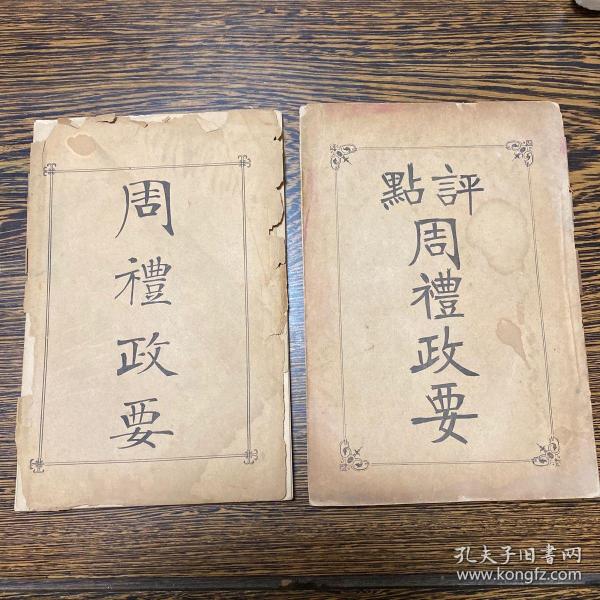 周禮政要
評點
周禮政要
孔夫子旧書网
www.kongfz.com